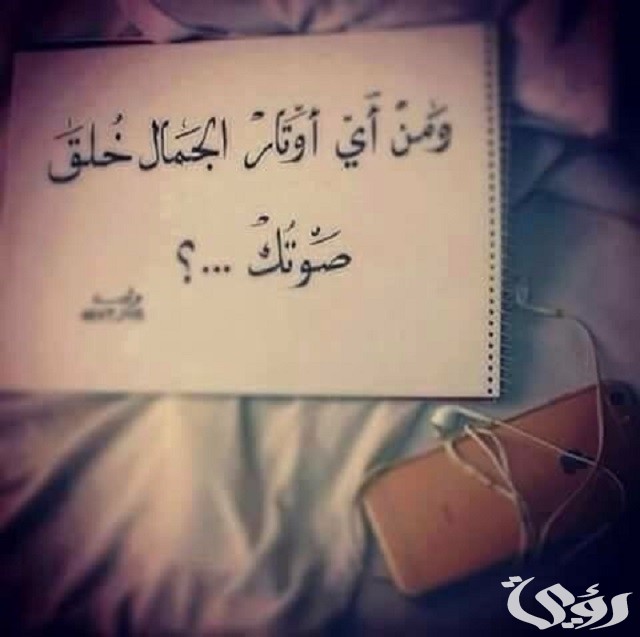 وَمَنْ أَيّ أوتَار الجَمَال خُلقَ
صَوْتُك ...؟
رؤى